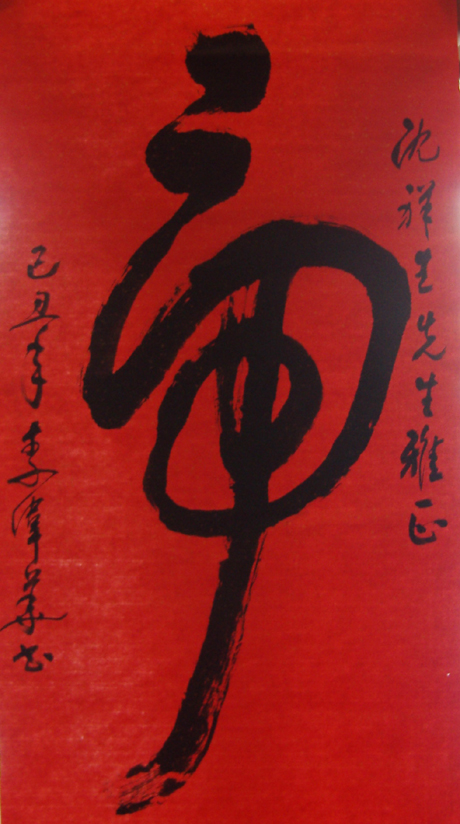 沈祥生先生雅正
虎
己丑年李偉華书